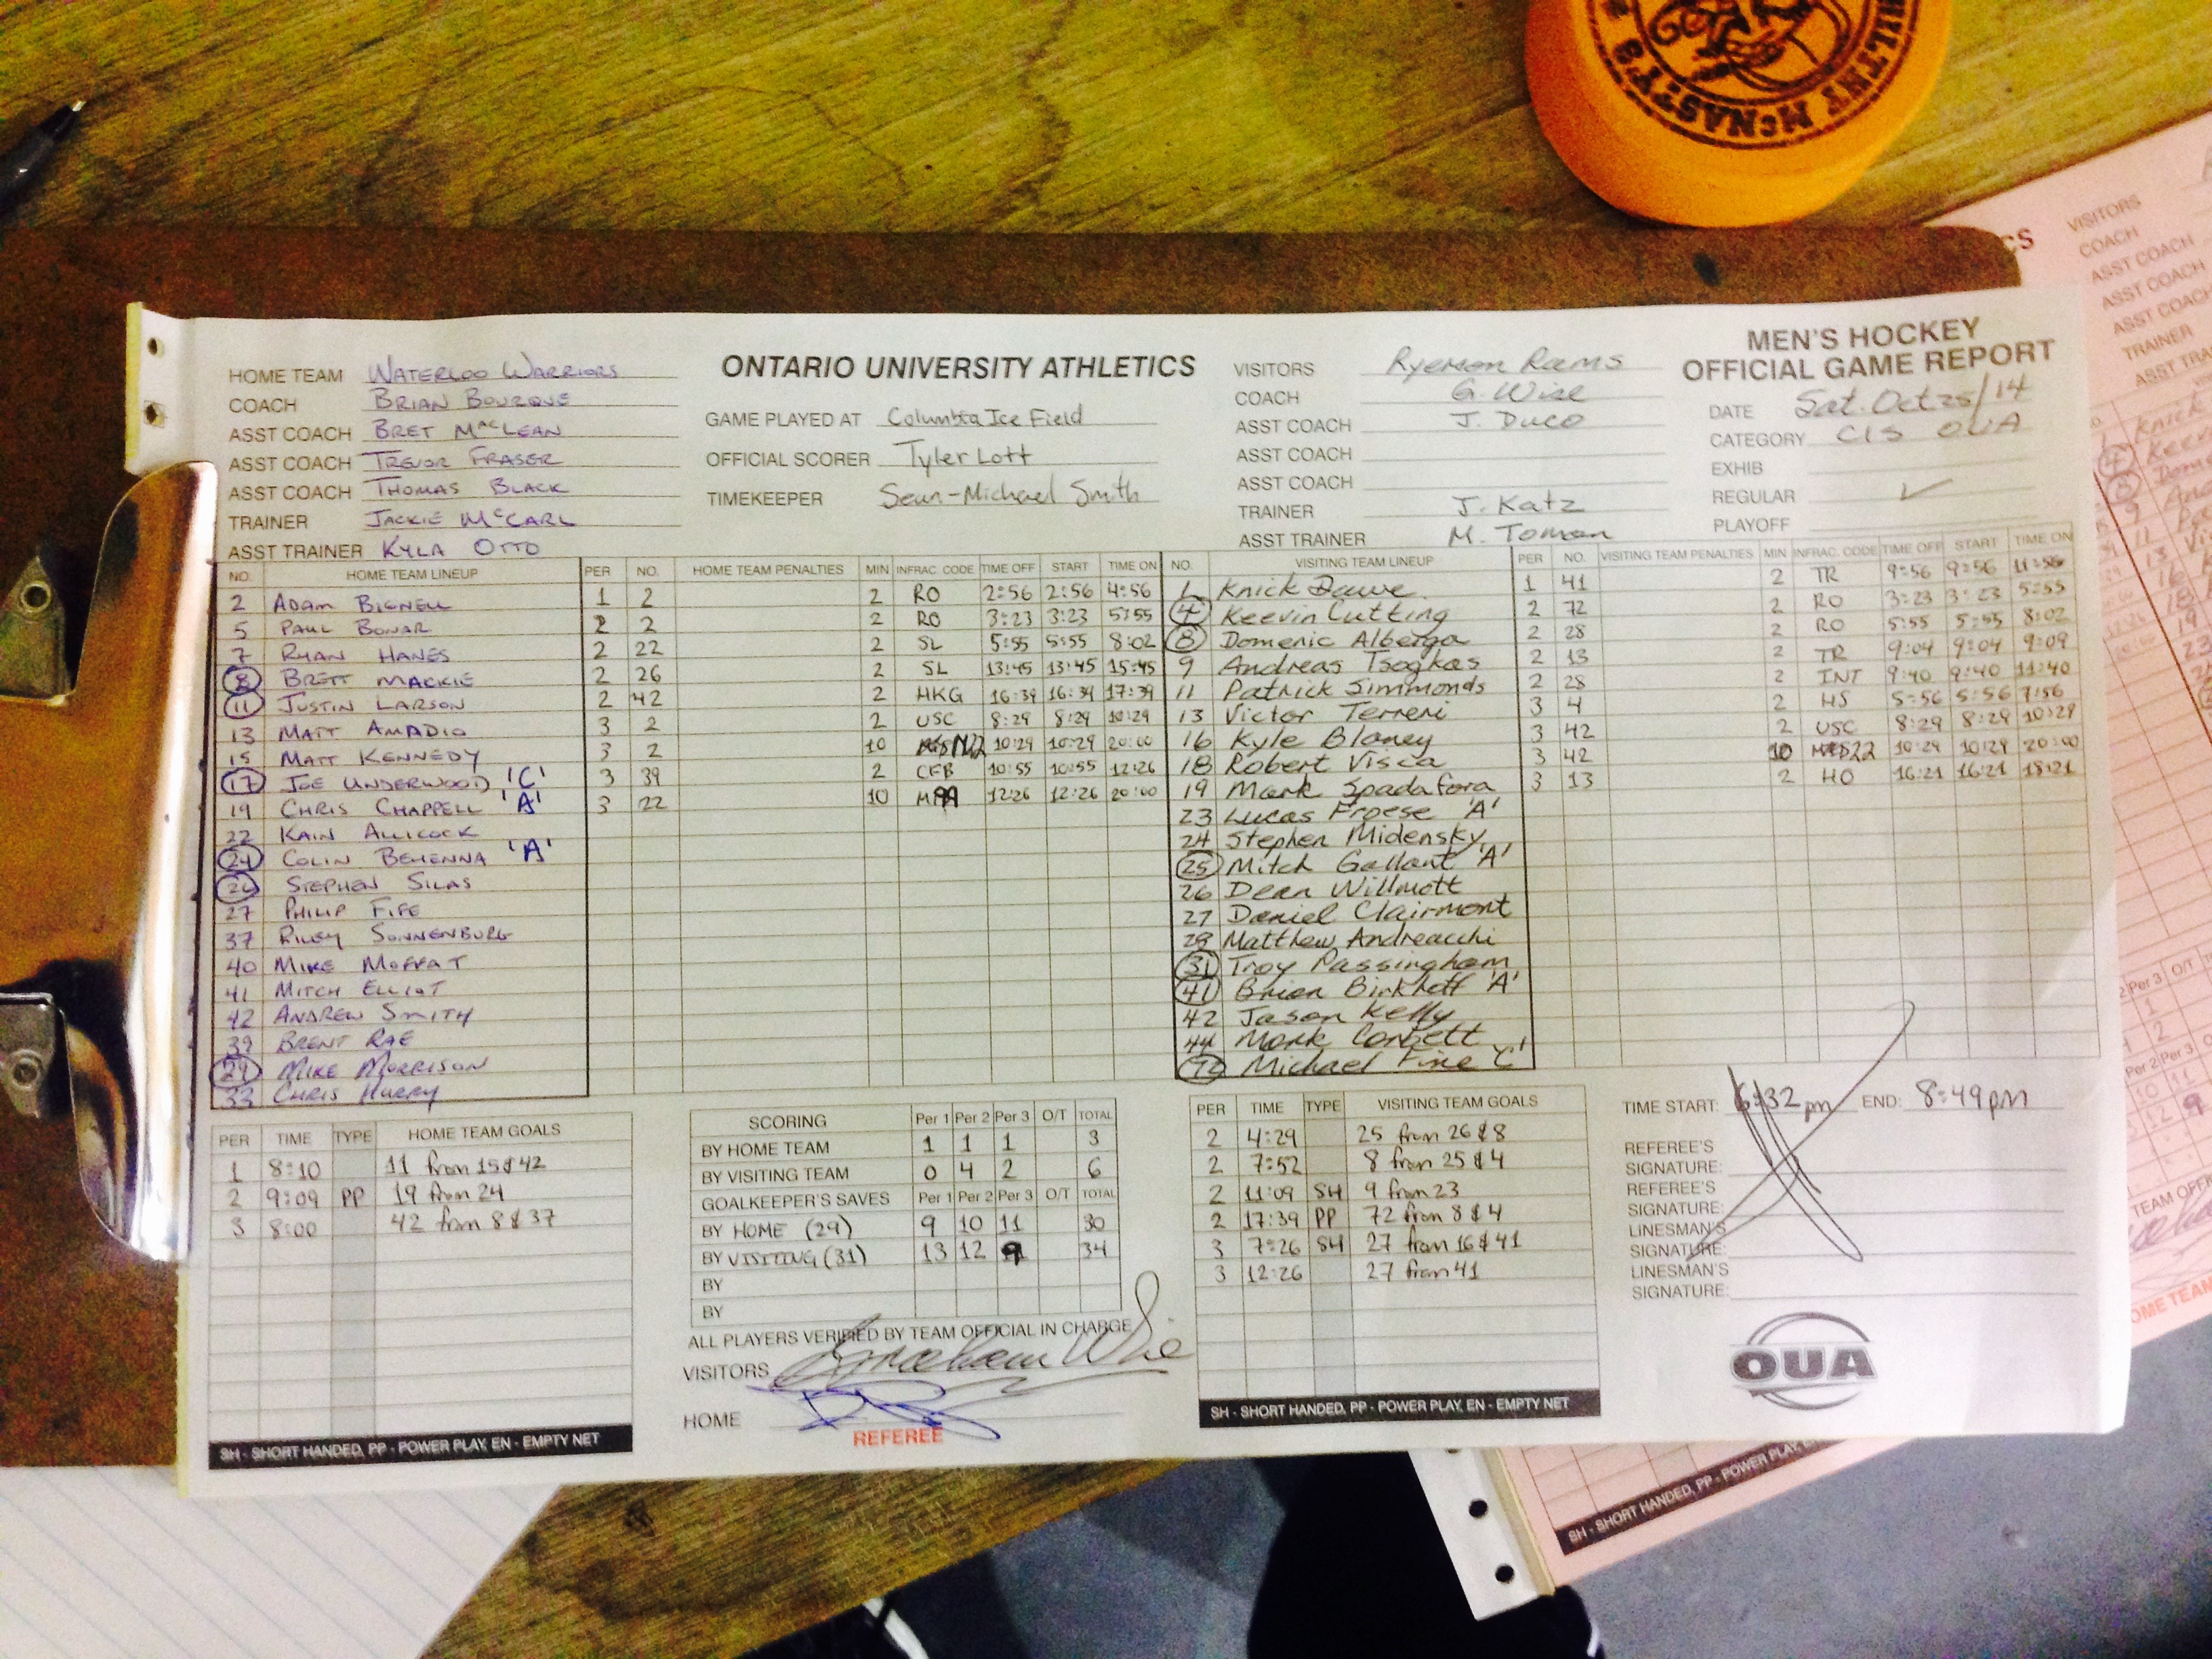 McNASTY'S
ONTARIO UNIVERSITY ATHLETICS
MEN'S HOCKEY
OFFICIAL GAME REPORT
HOME TEAM WATERLOO WARRIORS
COACH BRIAN BOURQUE
ASST COACH BRET MACLEAN
ASST COACH TREVOR FRASER
ASST COACH THOMAS BLACK
TRAINER JACKIE McCARL
ASST TRAINER KYLA OTTO
GAME PLAYED AT Columbia Ice Field
OFFICIAL SCORER Tyler Lott
TIMEKEEPER Sean-Michael Smith
VISITORS Ryerson Rams
COACH G. Wise
ASST COACH J. Duco
ASST COACH
ASST COACH
TRAINER J. Katz
ASST TRAINER M. Toman
DATE Sat. Oct 25/14
CATEGORY CIS OUA
EXHIB
REGULAR ✓
PLAYOFF
NO. HOME TEAM LINEUP
2 ADAM BIGNELL
5 PAUL BONAR
7 RYAN HANES
8 BRETT MACKIE
11 JUSTIN LARSON
13 MATT AMADIO
15 MATT KENNEDY
17 JOE UNDERWOOD 'C'
19 CHRIS CHAPPELL 'A'
22 KAIN ALLICOCK
24 COLIN BEHENNA 'A'
26 STEPHEN SILAS
27 PHILIP FIFE
37 RILEY SONNENBURG
40 MIKE MOFFAT
41 MITCH ELLIOT
42 ANDREW SMITH
39 BRENT RAE
29 MIKE MORRISON
33 CHRIS HURRY
PER NO. HOME TEAM PENALTIES MIN INFRAC. CODE TIME OFF START TIME ON
1 2 2 RO 2:56 2:56 4:56
2 2 2 RO 3:23 3:23 5:55
2 22 2 SL 5:55 5:55 8:02
2 26 2 SL 13:45 13:45 15:45
2 42 2 HKG 16:39 16:39 17:39
3 2 2 USC 8:29 8:29 10:29
3 2 10 10:29 10:29 20:00
3 39 2 CFB 10:55 10:55 12:26
3 22 10 12:26 12:26 20:00
NO. VISITING TEAM LINEUP
1 Knick Dawe
4 Keevin Cutting
8 Domenic Alberga
9 Andreas Tsogkas
11 Patrick Simmonds
13 Victor Terreri
16 Kyle Blaney
18 Robert Visca
19 Mark Spadafora
23 Lucas Froese 'A'
24 Stephen Midensky
25 Mitch Gallant 'A'
26 Dean Willmott
27 Daniel Clairmont
28 Matthew Andreacchi
31 Troy Passingham
41 Brian Birkhoff 'A'
42 Jason Kelly
44 Mark Corbett
72 Michael Fine 'C'
PER NO. VISITING TEAM PENALTIES MIN INFRAC. CODE TIME OFF START TIME ON
1 41 2 TR 9:56 9:56 11:56
2 72 2 RO 3:23 3:23 5:55
2 28 2 RO 5:55 5:55 8:02
2 13 2 TR 9:04 9:04 9:09
2 28 2 INT 9:40 9:40 11:40
3 4 2 HS 5:56 5:56 7:56
3 42 2 USC 8:29 8:29 10:29
3 42 10 10:29 10:29 20:00
3 13 2 HO 16:21 16:21 18:21
PER TIME TYPE HOME TEAM GOALS
1 8:10 11 from 15 & 42
2 9:09 PP 19 from 24
3 8:00 42 from 8 & 37
SH - SHORT HANDED, PP - POWER PLAY, EN - EMPTY NET
SCORING Per 1 Per 2 Per 3 O/T TOTAL
BY HOME TEAM 1 1 1 3
BY VISITING TEAM 0 4 2 6
GOALKEEPER'S SAVES Per 1 Per 2 Per 3 O/T TOTAL
BY HOME (29) 9 10 11 30
BY VISITING (31) 13 12 9 34
BY
BY
ALL PLAYERS VERIFIED BY TEAM OFFICIAL IN CHARGE
VISITORS Graham Wise
HOME
REFEREE
PER TIME TYPE VISITING TEAM GOALS
2 4:29 25 from 26 & 8
2 7:52 8 from 25 & 4
2 11:09 SH 9 from 23
2 17:39 PP 72 from 8 & 4
3 7:26 SH 27 from 16 & 41
3 12:26 27 from 41
SH - SHORT HANDED, PP - POWER PLAY, EN - EMPTY NET
TIME START: 6:32 pm END: 8:49 pm
REFEREE'S
SIGNATURE:
REFEREE'S
SIGNATURE:
LINESMAN'S
SIGNATURE:
LINESMAN'S
SIGNATURE:
OUA
VISITORS
COACH
ASST COACH
ASST COACH
ASST COACH
TRAINER
SH - SHORT HANDED, PP - POWER PLAY,